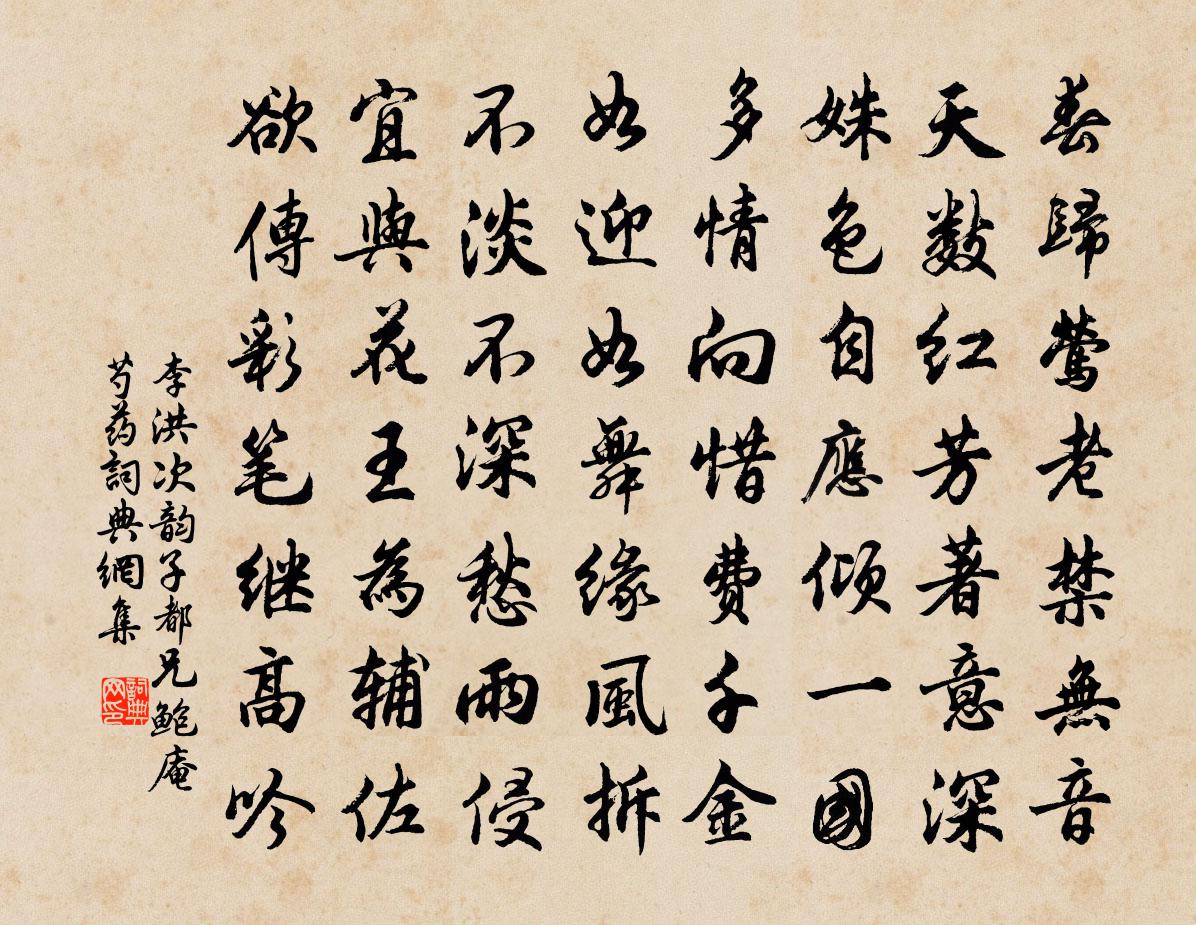 春歸鶯老禁無音
天數红芳著意深
姝色自應傾一國
多情向惜費千金
如迎如舞緣風拆
不淡不深愁雨侵
宜與花王為辅佐
欲傳彩笔继高吟
李洪次韵子都兄鲍庵
芍药詞典網集
詞典网印